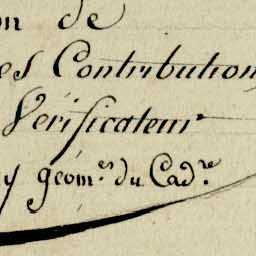 m de
es Contribution
Vérificateur
y géom.es du Cad.re